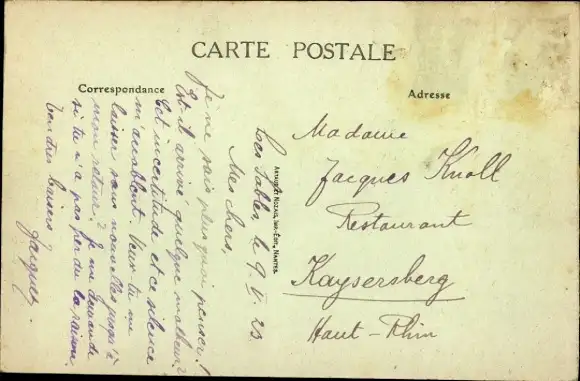 CARTE POSTALE
Correspondance
Adresse
Les Sables, le 9. V. 23.
Mes chers,
Je ne sais plus quoi penser!
Est-il arrivé quelque malheur?
Cet incertitude et ce silence
m'accablent. Veux-tu me
laisser sans nouvelles jusqu'à
mon retour? Je me demande
si tu n'a pas perdu la raison.
Tendres baisers
Jacques.
ARTAUD ET NOZAIS, IMP.-ÉDIT., NANTES
Madame
Jacques Knoll
Restaurant
Kaysersberg
Haut-Rhin